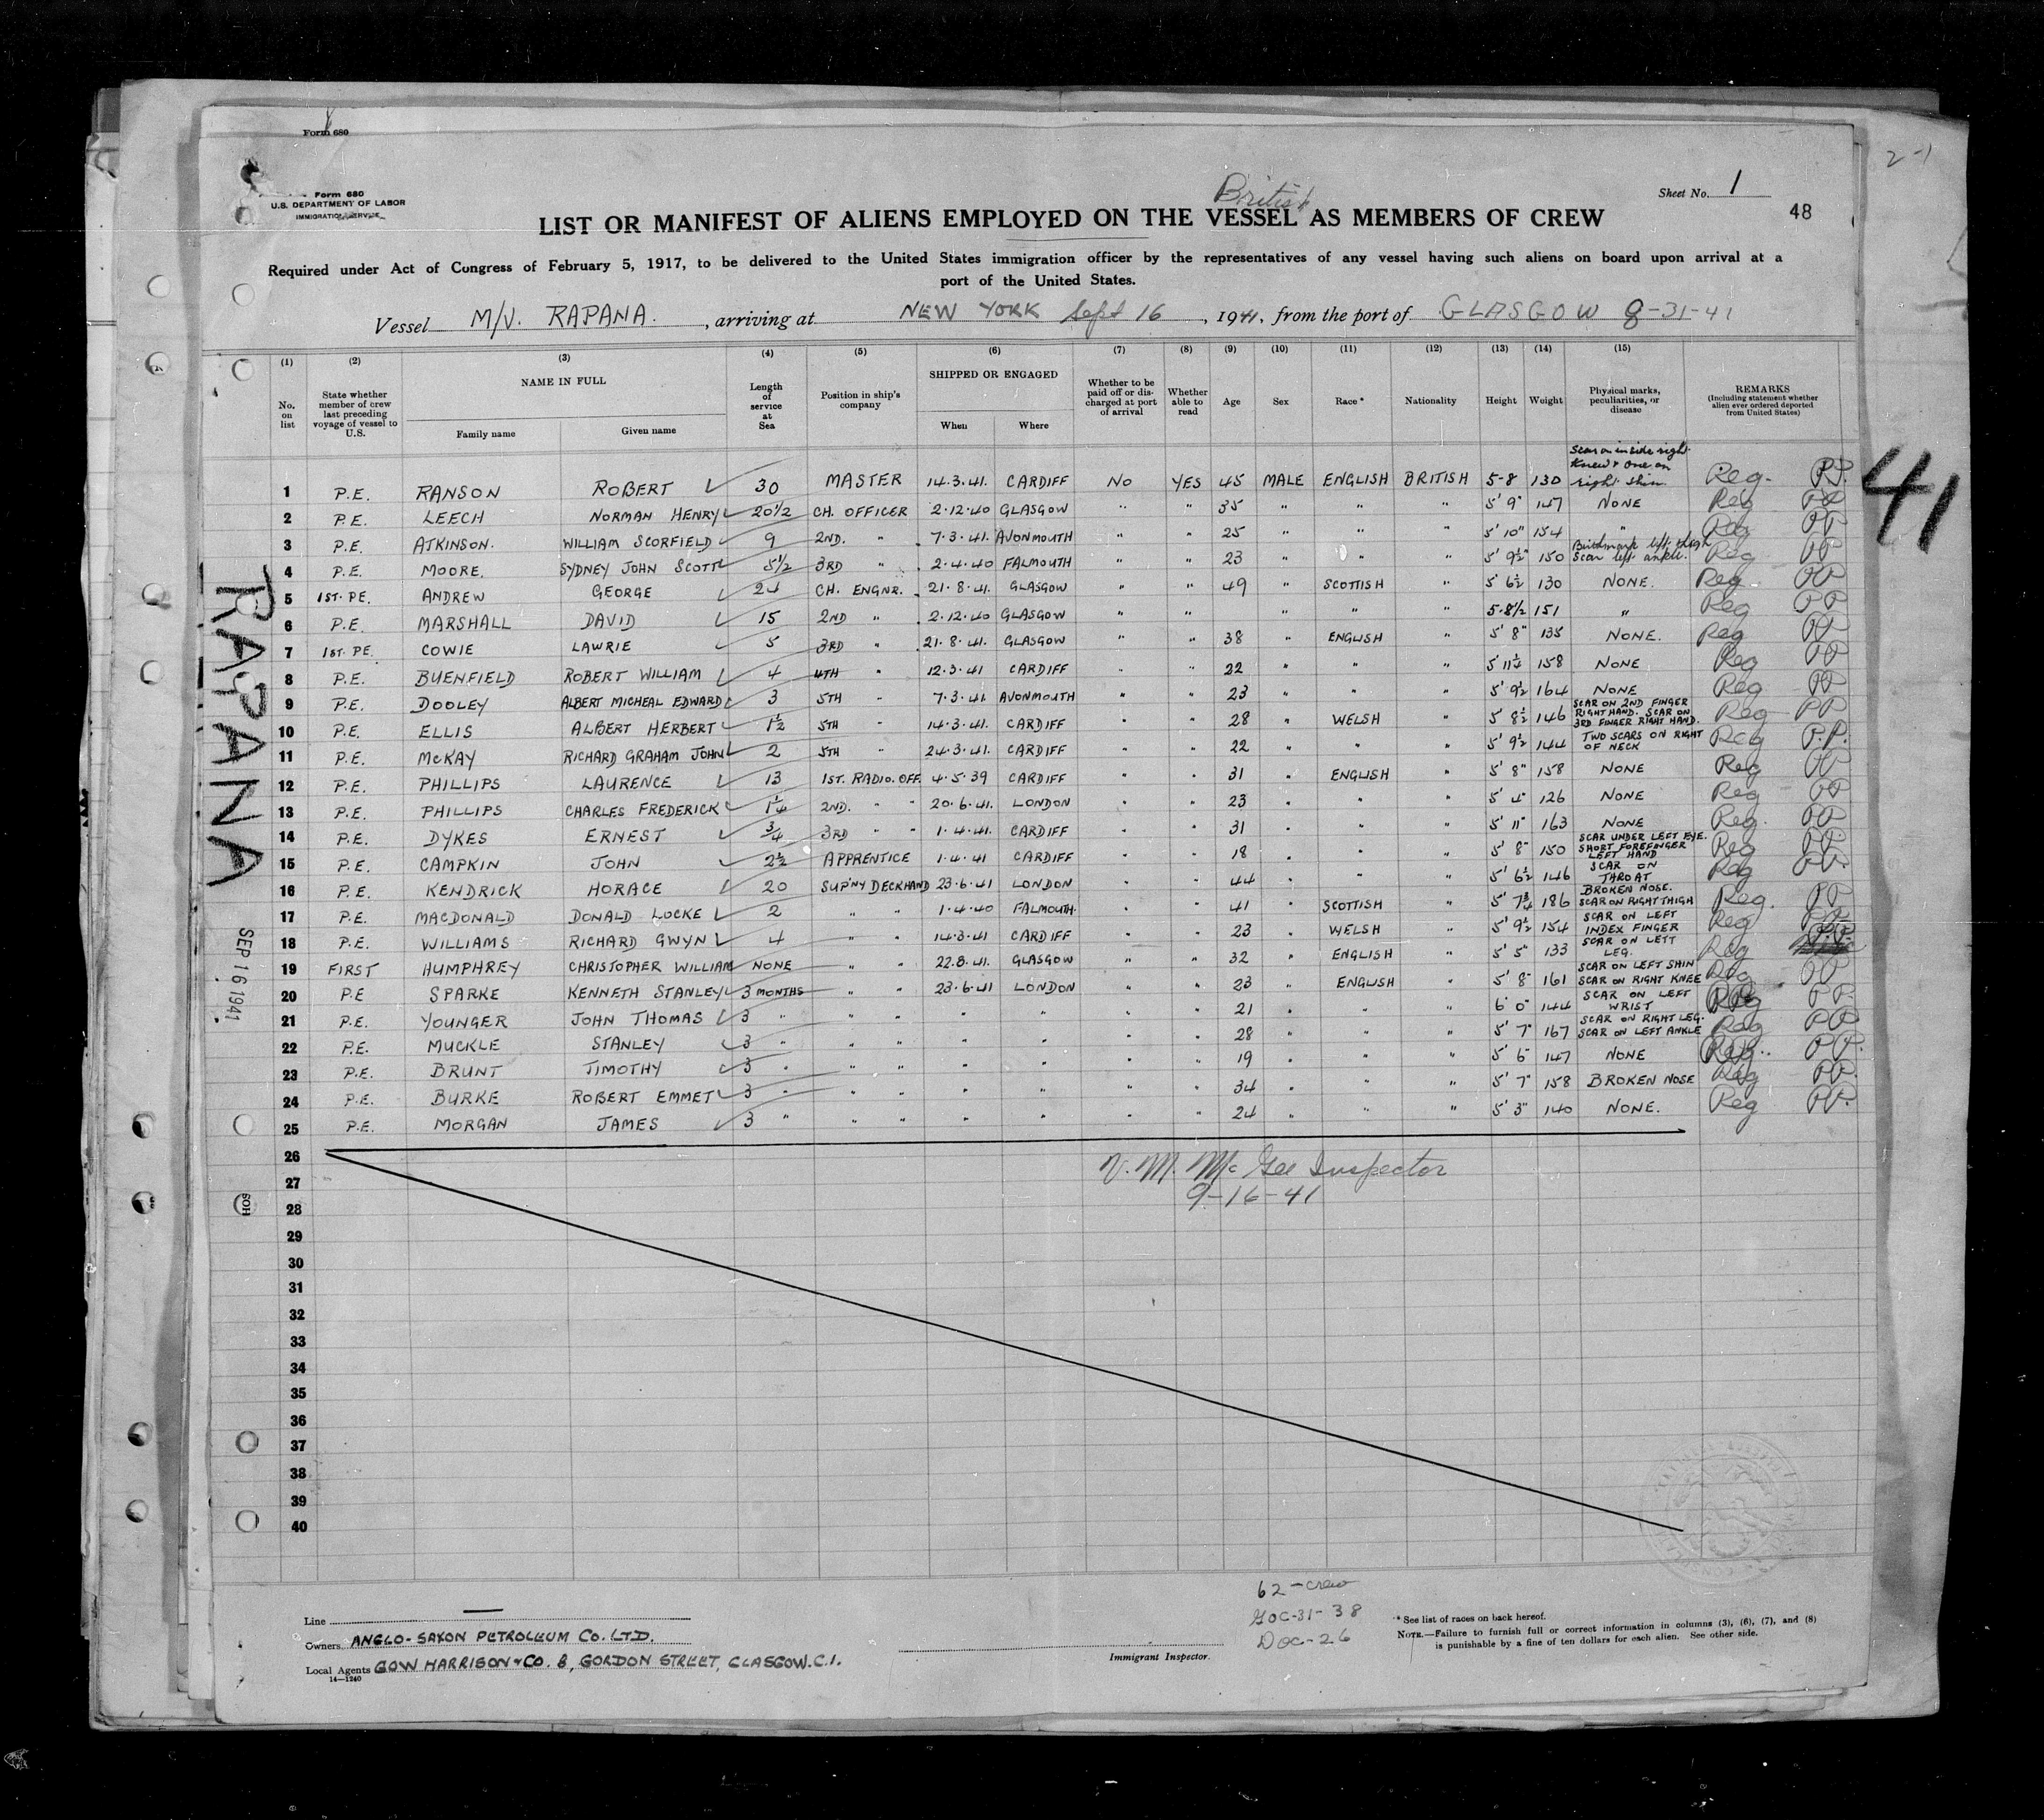 Form 680
2-1
Form 680
U.S. DEPARTMENT OF LABOR
IMMIGRATION SERVICE
British
Sheet No. 1
LIST OR MANIFEST OF ALIENS EMPLOYED ON THE VESSEL AS MEMBERS OF CREW
48
Required under Act of Congress of February 5, 1917, to be delivered to the United States immigration officer by the representatives of any vessel having such aliens on board upon arrival at a
port of the United States.
Vessel M/V. RAPANA. , arriving at NEW YORK Sept 16 , 1941, from the port of GLASGOW 8-31-41
(1) (2) (3) (4) (5) (6) (7) (8) (9) (10) (11) (12) (13) (14) (15)
No. on list State whether member of crew last preceding voyage of vessel to U.S. NAME IN FULL Family name Given name Length of service at Sea Position in ship's company SHIPPED OR ENGAGED When Where Whether to be paid off or discharged at port of arrival Whether able to read Age Sex Race* Nationality Height Weight Physical marks, peculiarities, or disease REMARKS (Including statement whether alien ever ordered deported from United States)
1 P.E. RANSON ROBERT 30 MASTER 14.3.41. CARDIFF No YES 45 MALE ENGLISH BRITISH 5-8 130 Scar on inside right Knee & one on right shin Reg. PP.
2 P.E. LEECH NORMAN HENRY 20½ CH. OFFICER 2.12.40 GLASGOW " " 35 " " " 5' 9" 147 NONE Reg PP
3 P.E. ATKINSON. WILLIAM SCORFIELD 9 2ND. " 7.3.41. AVONMOUTH " " 25 " " " 5' 10" 154 " Reg PP
4 P.E. MOORE. SYDNEY JOHN SCOTT 5½ 3RD " 2.4.40 FALMOUTH " " 23 " " " 5' 9½" 150 Birthmark left thigh Scar left ankle. Reg PP
5 1ST. PE. ANDREW GEORGE 24 CH. ENGNR. 21.8.41. GLASGOW " " 49 " SCOTTISH " 5' 6½ 130 NONE. Reg PP
6 P.E. MARSHALL DAVID 15 2ND " 2.12.40 GLASGOW " " " " " 5-8½ 151 " Reg PP
7 1ST. PE. COWIE LAWRIE 5 3RD " 21.8.41. GLASGOW " " 38 " ENGLISH " 5' 8" 135 NONE. Reg PP
8 P.E. BUENFIELD ROBERT WILLIAM 4 4TH " 12.3.41 CARDIFF " " 22 " " " 5' 11¼ 158 NONE Reg PP
9 P.E. DOOLEY ALBERT MICHEAL EDWARD 3 5TH " 7.3.41. AVONMOUTH " " 23 " " " 5' 9½ 164 NONE Reg PP
10 P.E. ELLIS ALBERT HERBERT 1½ 5TH " 14.3.41. CARDIFF " " 28 " WELSH " 5' 8½ 146 SCAR ON 2ND FINGER RIGHT HAND. SCAR ON 3RD FINGER RIGHT HAND. Reg PP
11 P.E. McKAY RICHARD GRAHAM JOHN 2 5TH " 24.3.41. CARDIFF " " 22 " " " 5' 9½ 144 TWO SCARS ON RIGHT OF NECK Reg P.P.
12 P.E. PHILLIPS LAURENCE 13 1ST. RADIO. OFF. 4.5.39 CARDIFF " " 31 " ENGLISH " 5' 8" 158 NONE Reg PP
13 P.E. PHILLIPS CHARLES FREDERICK 1¼ 2ND. " " 20.6.41. LONDON " " 23 " " " 5' 4" 126 NONE Reg PP
14 P.E. DYKES ERNEST ¾ 3RD " " 1.4.41. CARDIFF " " 31 " " " 5' 11" 163 NONE Reg. PP
15 P.E. CAMPKIN JOHN 2½ APPRENTICE 1.4.41 CARDIFF " " 18 " " " 5' 8" 150 SCAR UNDER LEFT EYE. SHORT FOREFINGER LEFT HAND Reg PP.
16 P.E. KENDRICK HORACE 20 SUP'NY DECKHAND 23.6.41 LONDON " " 44 " " " 5' 6½ 146 SCAR ON THROAT Reg PP.
17 P.E. MACDONALD DONALD LOCKE 2 " " 1.4.40 FALMOUTH. " " 41 " SCOTTISH " 5' 7¾ 186 BROKEN NOSE. SCAR ON RIGHT THIGH Reg. PP
18 P.E. WILLIAMS RICHARD GWYN 4 " " 14.3.41 CARDIFF " " 23 " WELSH " 5' 9½ 154 SCAR ON LEFT INDEX FINGER Reg PP
19 FIRST HUMPHREY CHRISTOPHER WILLIAM NONE " " 22.8.41. GLASGOW " " 32 " ENGLISH " 5' 5" 133 SCAR ON LEFT LEG. Reg P.P.
20 P.E SPARKE KENNETH STANLEY 3 MONTHS " " 23.6.41 LONDON " " 23 " ENGLISH " 5' 8" 161 SCAR ON LEFT SHIN SCAR ON RIGHT KNEE Reg PP
21 P.E. YOUNGER JOHN THOMAS 3 " " " " " " " 21 " " " 6' 0" 144 SCAR ON LEFT WRIST Reg PP.
22 P.E. MUCKLE STANLEY 3 " " " " " " " 28 " " " 5' 7" 167 SCAR ON RIGHT LEG. SCAR ON LEFT ANKLE Reg PP
23 P.E. BRUNT TIMOTHY 3 " " " " " " " 19 " " " 5' 6" 147 NONE Reg. PP.
24 P.E. BURKE ROBERT EMMET 3 " " " " " " " 34 " " " 5' 7" 158 BROKEN NOSE Reg PP.
25 P.E. MORGAN JAMES 3 " " " " " " " 24 " " " 5' 3" 140 NONE. Reg PP.
41
RAPANA
SEP 16 1941
26
V. M. McGee Inspector
27
9-16-41
28
29
30
31
32
33
34
35
36
37
38
39
40
62-crew
Line
GOC-31-38
Owners ANGLO-SAXON PETROLEUM Co. LTD.
DOC-26
Local Agents GOW HARRISON & CO. 8, GORDON STREET, GLASGOW. C.1.
14-1240
Immigrant Inspector.
* See list of races on back hereof.
NOTE.—Failure to furnish full or correct information in columns (3), (6), (7), and (8)
is punishable by a fine of ten dollars for each alien. See other side.